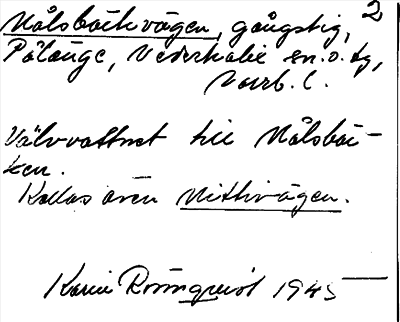 2
Målsbäckvägen, gångstig,
Pålänge, Nederkalix sn. o. tg,
Norrb. l.
Välvvattnet till Målsbäc-
ken.
Kallas även Mittivägen.
Karin Rönnquist 1945